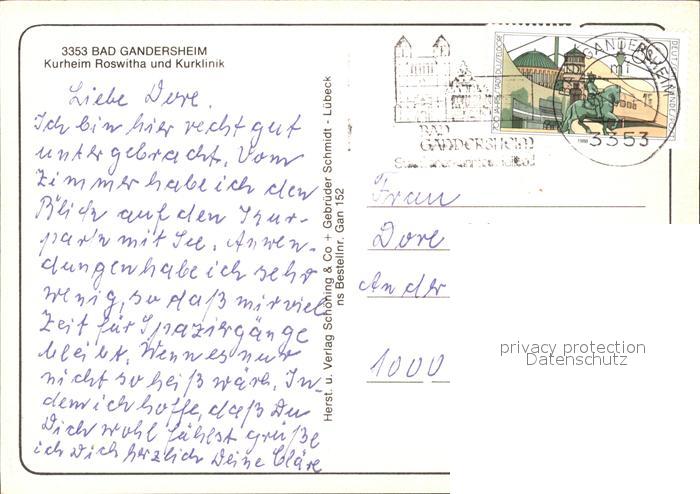 3353 BAD GANDERSHEIM
Kurheim Roswitha und Kurklinik
Liebe Dore.
Ich bin hier recht gut
untergebracht. Vom
Zimmer habe ich den
Blick auf den Kur-
park mit See. Anwen-
dungen habe ich sehr
wenig, so daß mir viel
Zeit für Spaziergänge
bleibt. Wenn es nur
nicht so heiß wäre. In-
dem ich hoffe, daß Du
Dich wohl fühlst grüße
ich Dich herzlich Deine Cläre
Herst. u. Verlag Schöning & Co + Gebrüder Schmidt - Lübeck
ns Bestellnr. Gan 152
BAD
GANDERSHEIM
GANDERSHEIM
3353
Frau
Dore
An der
1000
privacy protection
Datenschutz